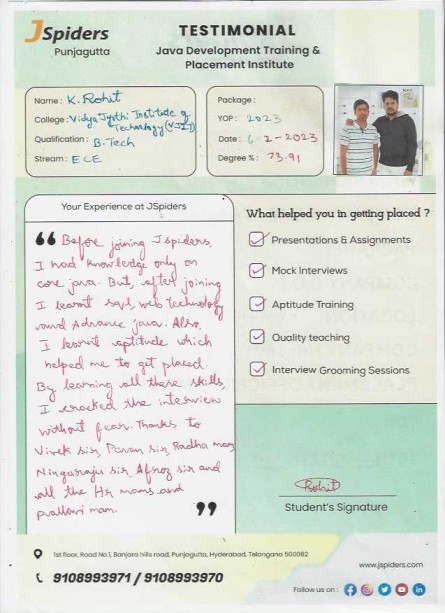 JSpiders
Punjagutta
TESTIMONIAL
Java Development Training &
Placement Institute
Name: K. Rohit
College: Vidya Jyothi Institute of
Technology (VJIT)
Qualification: B.Tech
Stream: ECE
Package:
YOP: 2023
Date: 6-2-2023
Degree %: 73.91
Your Experience at JSpiders
“ Before joining Jspiders.
I had knowledge only on
core java. But, after joining
I learnt sql, web technology
and Advance java. Also
I learnt aptitude which
helped me to get placed.
By learning all these skills,
I cracked the interview
without fear. Thanks to
Vivek sir, Pavan sir, Radha mam,
Ningaraju sir, Afroz sir and
all the Hr mams and
pallavi mam. ”
What helped you in getting placed ?
Presentations & Assignments
Mock Interviews
Aptitude Training
Quality teaching
Interview Grooming Sessions
Rohit
Student's Signature
1st floor, Road No.1, Banjara hills road, Punjagutta, Hyderabad, Telangana 500082
9108993971 / 9108993970
www.jspiders.com
Follow us on :